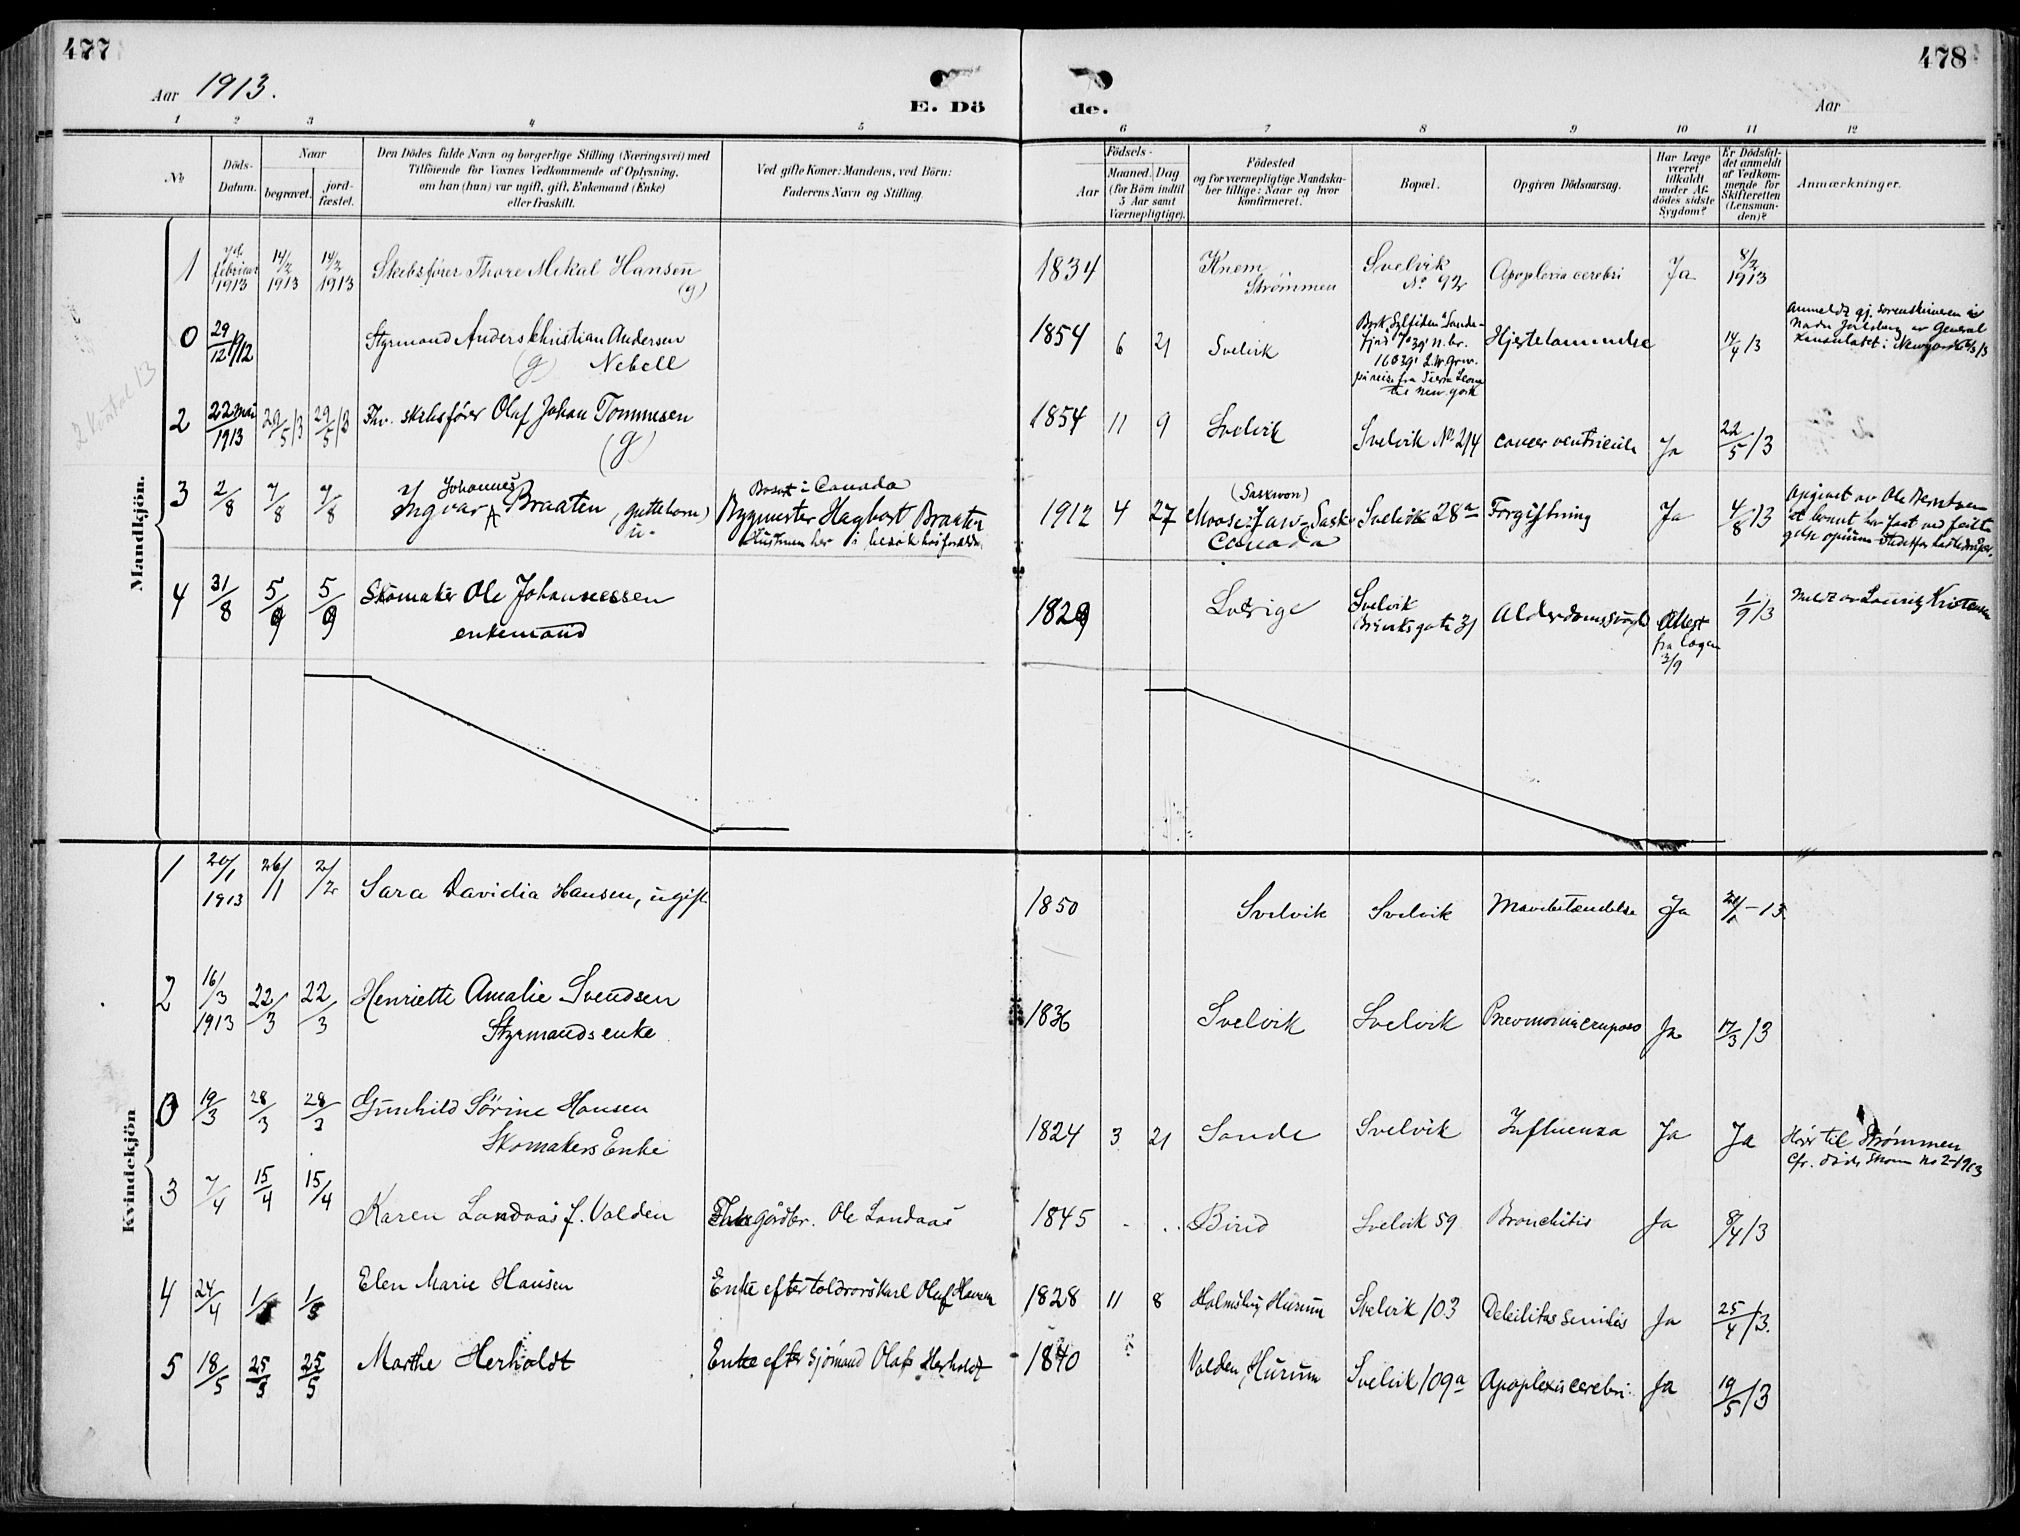 477
478
Aar 1913.
E. Dö
de.
Aar
1 2 3 4 5 6 7 8 9 10 11 12
№
Döds-Datum.
Naar
begravet.
jord-fæstet.
Den Dödes fulde Navn og borgerlige Stilling (Næringsvei) med
Tilföiende for Voxnes Vedkommende af Oplysning,
om han (hun) var ugift, gift, Enkemand (Enke)
eller fraskilt.
Ved gifte Koner: Mandens, ved Börn:
Faderens Navn og Stilling.
Födsels-
Aar
Maaned. Dag
(for Börn indtil
5 Aar samt
Værnepligtige).
Födested
og for værnepligtige Mandska-
ber tillige: Naar og hvor
konfirmeret.
Bopæl.
Opgiven Dödsaarsag.
Har Læge
været
tilkaldt
under Af-
dödes sidste
Sygdom?
Er Dödsfal-
det anmeldt
af Vedkom-
mende for
Skifteretten
(Lensman-
den)?
Anmærkninger.
Mandkjön.
1 februar 1913 14/2 1913 14/2 1913 Skibsfører Thore Mikal Hansen (g) 1834 Strømmen Svelvik No 92 Apoplexia cerebri Ja 8/2 1913
0 29/12 1912 Styrmand Anders Christian Andersen
(g) Nebell
1854 6 21 Svelvik
Hjertelammelse 14/4 13
2 Kvartal 13
2 22 mai 1913 29/5 13 29/5 13 Fhv. skibsfører Olaf Johan Tommesen
(g)
1854 11 9 Svelvik Svelvik No 214 cancer ventriculi Ja 22/5 13
3 2/8 7/8 7/8 Johannes
Ingvar Braaten (guttebarn)
u.
Bosat i Canada
Bygmester Hagbart Braaten
1912 4 27 Moose-Jaw-Sask
Canada
Svelvik 28a Forgiftning Ja 4/8 13
4 31/8 5/9 5/9 Skomaker Ole Johannessen
enkemand
1829 Sverige Svelvik
31
Alderdomssvagh Attest
fra lægen
3/9
1/9 13 Meldt av Lauritz Kristensen
Kvindekjön
1 20/1 1913 26/1 2/2 Sara Davidia Hansen, ugift 1850 Svelvik Svelvik Ja -13.
2 16/3 1913 22/3 22/3 Henriette Amalie Svendsen
Styrmands enke
1836 Svelvik Svelvik Pneumonia cruposa Ja 17/3 13
0 19/3 28/3 28/3 Gunhild Sørine Hansen
Skomakers Enke
1824 3 21 Sande Svelvik Influenza Ja Ja Hører til Strømmen
No 2-1913
3 7/4 15/4 15/4 Karen Landaas f. Valden gårdbr. Ole Landaas 1845 Birid Svelvik 59 Bronchitis Ja 8/4 13
4 24/4 Elen Marie Hansen Enke efter toldrorskarl Olaf Hansen 1828 11 8 Holmsbu, Hurum Svelvik 103 Debilitas senilis Ja 25/4 13.
5 18/5 25/5 25/5 Marthe Herholdt Enke efter sjømand Olaf Herholdt 1840 Valden, Hurum Svelvik 109a Apoplexia cerebri. Ja 19/5 13